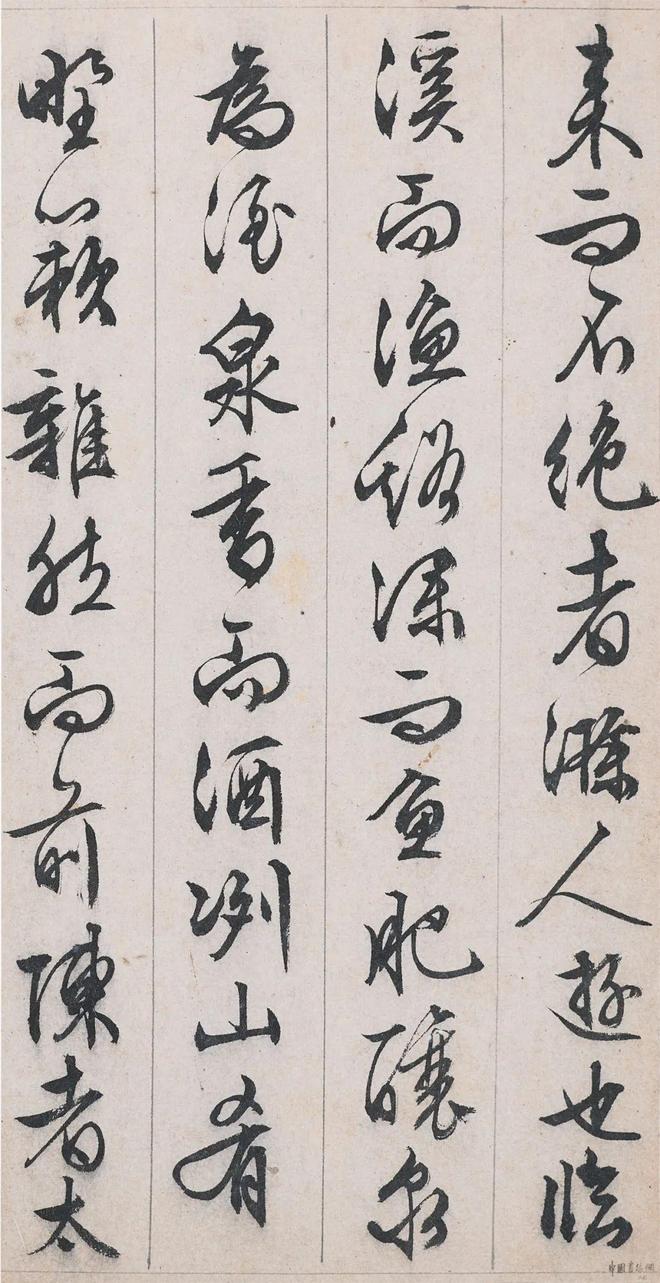 來而不絕者滁人遊也臨
溪而漁谿深而魚肥釀泉
為酒泉香而酒冽山肴
野蔌雜然而前陳者太